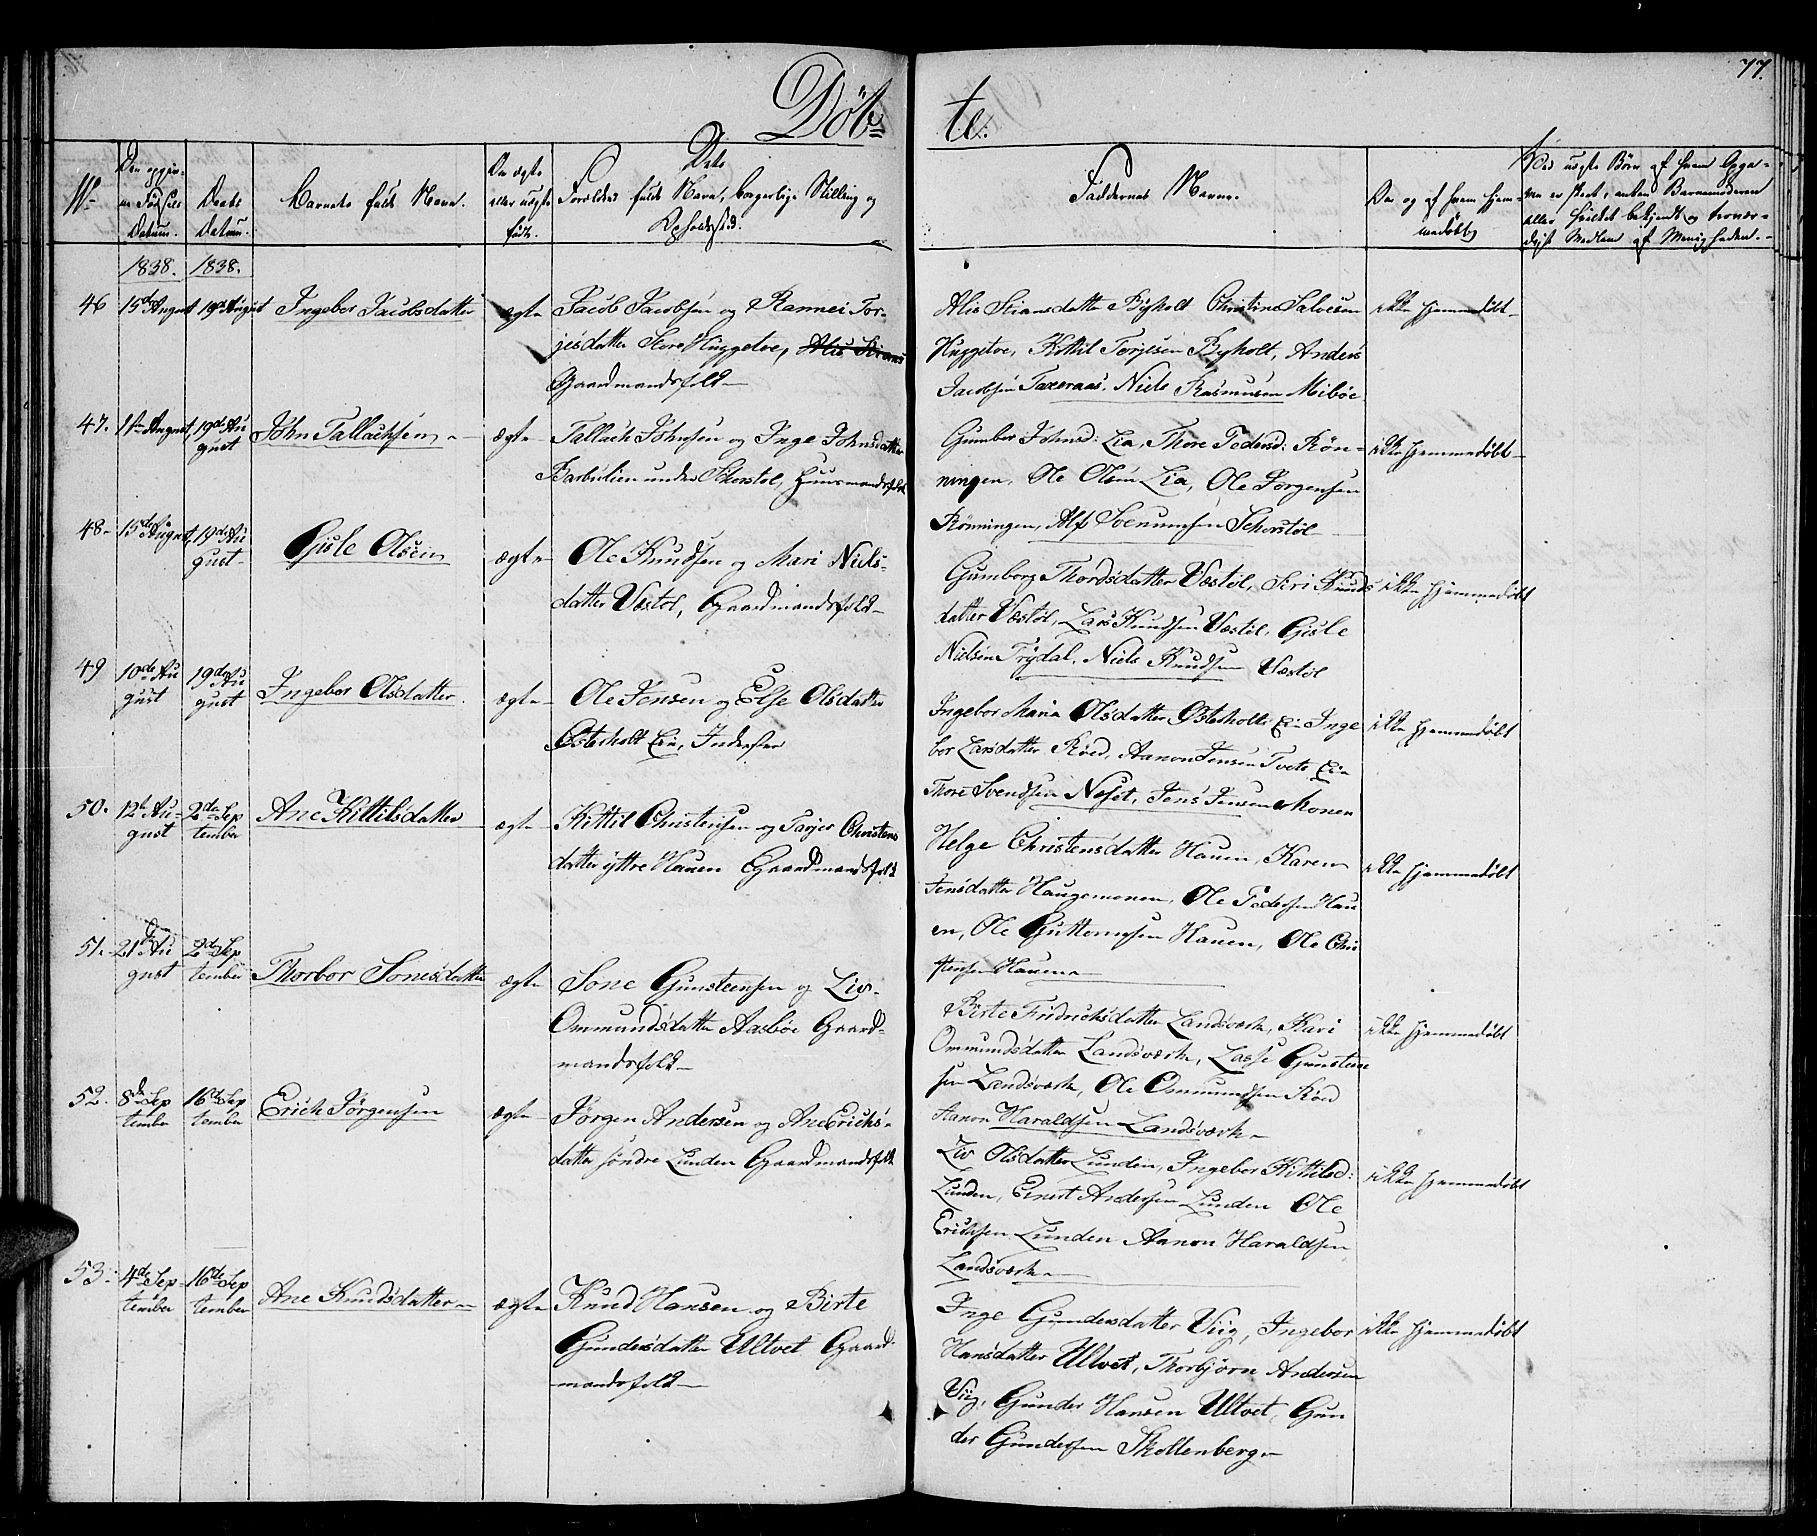 77.
Döb=
te.
No
Den opgiv-
ne Fødsels
Datum.
Daabs
Datum.
Barnets fulde Navn.
Om ægte
eller uægte
født.
Dets
Forældres fulde Navn, borgerlige Stilling og
Opholdssted.
Faddernes Navne.
Om og af hvem hjem-
medøbt
Ved uægte Børn af hvem Opga-
ven er skeet, enten Barnemoderen
eller hvilket bekjendt og troevær-
digt Medlem af Menigheden.
1838.
1838.
46
15de August
19de August
Ingebor Jacobsdatter
ægte
Jacob Jacobsen og Rannei Tor-
jesdatter Store Huggetve,
Gaardmandsfolk
Alis Stiansdatter Byholt Christine Salvesen
Huggetve, Kittil Torjesen Byholt, Anders
Jacobsen Taxeraas. Niels Rasmusen Miböe
ikke hjemmedöbt
47.
11te August
19de Au
gust
John Tallachsen
ægte
Tallach Johnsen og Inge Johnsdatter
Barbulien under Skorstöl, Huusmandsfolk
Gumbor Johnsd: Lia, Thore Pedersd: Rön-
ningen, Ole Olsen Lia, Ole Jörgensen
Rönningen, Alf Svenumsen Schorstöl
ikke hjemmedöbt
48
15de August
19de Au
gust
Gisle Olsen
ægte
Ole Knudsen og Mari Niels-
datter Væstöl, Gaardmandsfolk
Gumborg Thordsdatter Væstöl, Siri Knuds
datter Væstöl, Lars Knudsen Væstöl, Gisle
Nielsen Trydal, Niels Knudsen Væstöl
ikke hjemmedöbt
49
10de Au
gust
19de Au
gust
Ingebor Olsdatter
ægte
Ole Jensen og Else Olsdatter
Österholt Eie, Inderster
Ingebor Maria Olsdatter Österholt Eie Inge
bor Larsdatter Röed, Aanon Jensen Tvete Eie
Thore Svendsen Neset, Jens Jensen Monen
ikke hjemmedöbt
50.
12te Au
gust
2den Sep
tember
Ane Kittilsdatter
ægte
Kittil Christensen og Tarjer Christens
datter yttre Hauen Gaardmandsfolk
Helge Christensdatter Hauen, Karen
Jensdatter Haugemonen, Ole Pedersen Hau
en, Ole Guttormsen Hauen, Ole Chri
stensen Hauen
ikke hjemmedöbt
51.
21de Au
gust
2den Sep
tember
Thorbor Sonesdatter
ægte
Sone Gunsteensen og Liv
Ommundsdatter Aasböe Gaard-
mandsfolk
Birte Fridrichsdatter Landsværk, Kari
Ommundsdatter Landsværk, Lasse Gunsteen
sen Landsværk, Ole Ommundsen Röed
Aanon Haraldsen Landsværk
ikke hjemmedöbt
52.
8de Sep
tember
16de Sep
tember
Erich Jörgensen
ægte
Jörgen Andersen og Ane Erichs-
datter söndre Lunden Gaardmandsfolk
Liv Olsdatter Lunden, Ingebor Kittilsd:
Lunden, Ernst Andersen Lunden Ole
Erichsen Lunden Aanon Haraldsen
Landsværk
ikke hjemmedöbt
53.
4de Sep
tember
16de Sep
tember
Ane Knudsdatter
ægte
Knud Hansen og Birte
Gundersdatter Ultvet Gaard-
mandsfolk
Inge Gundersdatter Viig, Ingebor
Hansdatter Ultvet, Thorbjörn Andersen
Viig, Gunder Hansen Ultvet, Gun
der Gundersen Skollenberg
ikke hjemmedöbt